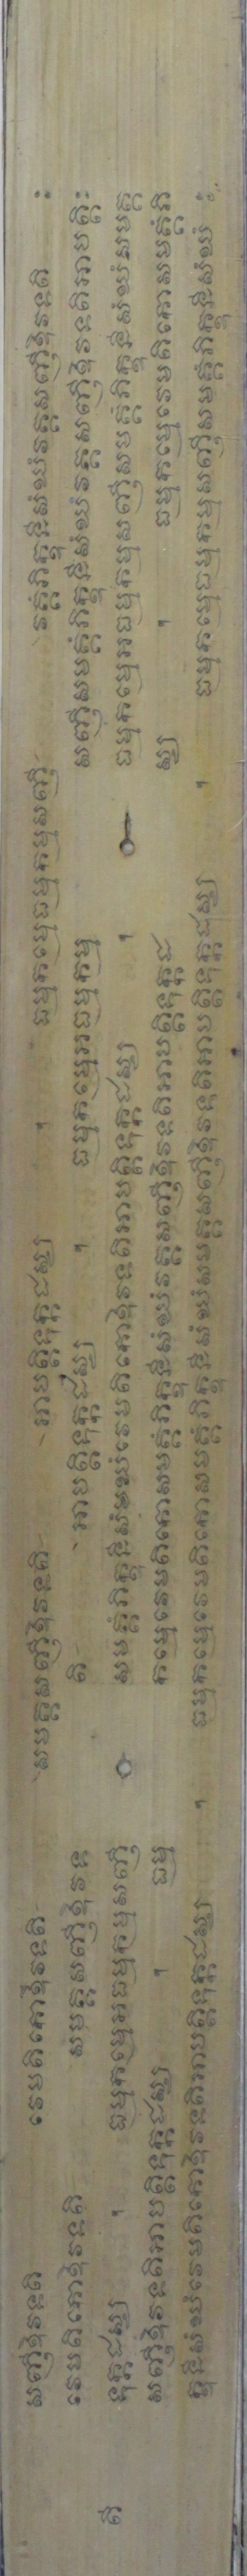 សញ្ញីឱវទតិ វេមតិកោឱវទតិ សមគ្គសញ្ញីឱវទតិ អាបត្តិទុក្កដស្ស ។ ធម្មកម្មេធម្មកម្មសញ្ញី វគ្គំភិក្ខុនីសំឃំវគ្គសញ្ញីឱវទតិ ៖
វេមតិកោឱវទតិ សមគ្គសញ្ញីឱវទ តិ អាបត្តិទុក្កដស្ស ។ ធម្មកម្មេអធម្មកម្ម សញ្ញីសមគ្គំភិក្ខុនីសំឃំវគ្គសញ្ញីឱវទតិអាបត្តិ៖
ទុក្កដស្ស ។ ធម្មកម្មេអធម្មកម្មសញ្ញី សមគ្គំភិក្ខុនីសំឃំវេមតិកោឱវទតិអាបត្តិទុក្កដស្ស ។ ធម្មកម្មេអធម្មកម្មសញ្ញីសមគ្គំភិក្ខុនីសំឃំសមគ្គ
សញ្ញីឱវទតិអាបត្តិទុក្កដស្ស ។ ធម្ម កម្មេវេមតិកោសមគ្គំភិក្ខុនីសំឃំវគ្គសញ្ញីឱវទតិអាបត្តិទុក្កដ ស្ស ។ ធម្មកម្មេវេមតិកោសមគ្គំភិ
ក្ខុនីសំឃំវេមតិកោឱវទតិអាបត្តិទុក្កដស្ស ។ ធម្មកម្មេវេមតិកោសមគ្គំភិក្ខុនីសំឃំសមគ្គសញ្ញីឱវទតិអាបត្តិទុក្កដស្ស ។ ធម្មកម្មេធម្មកម្មសញ្ញីសមគ្គំភិក្ខុនីសំឃំ ៖